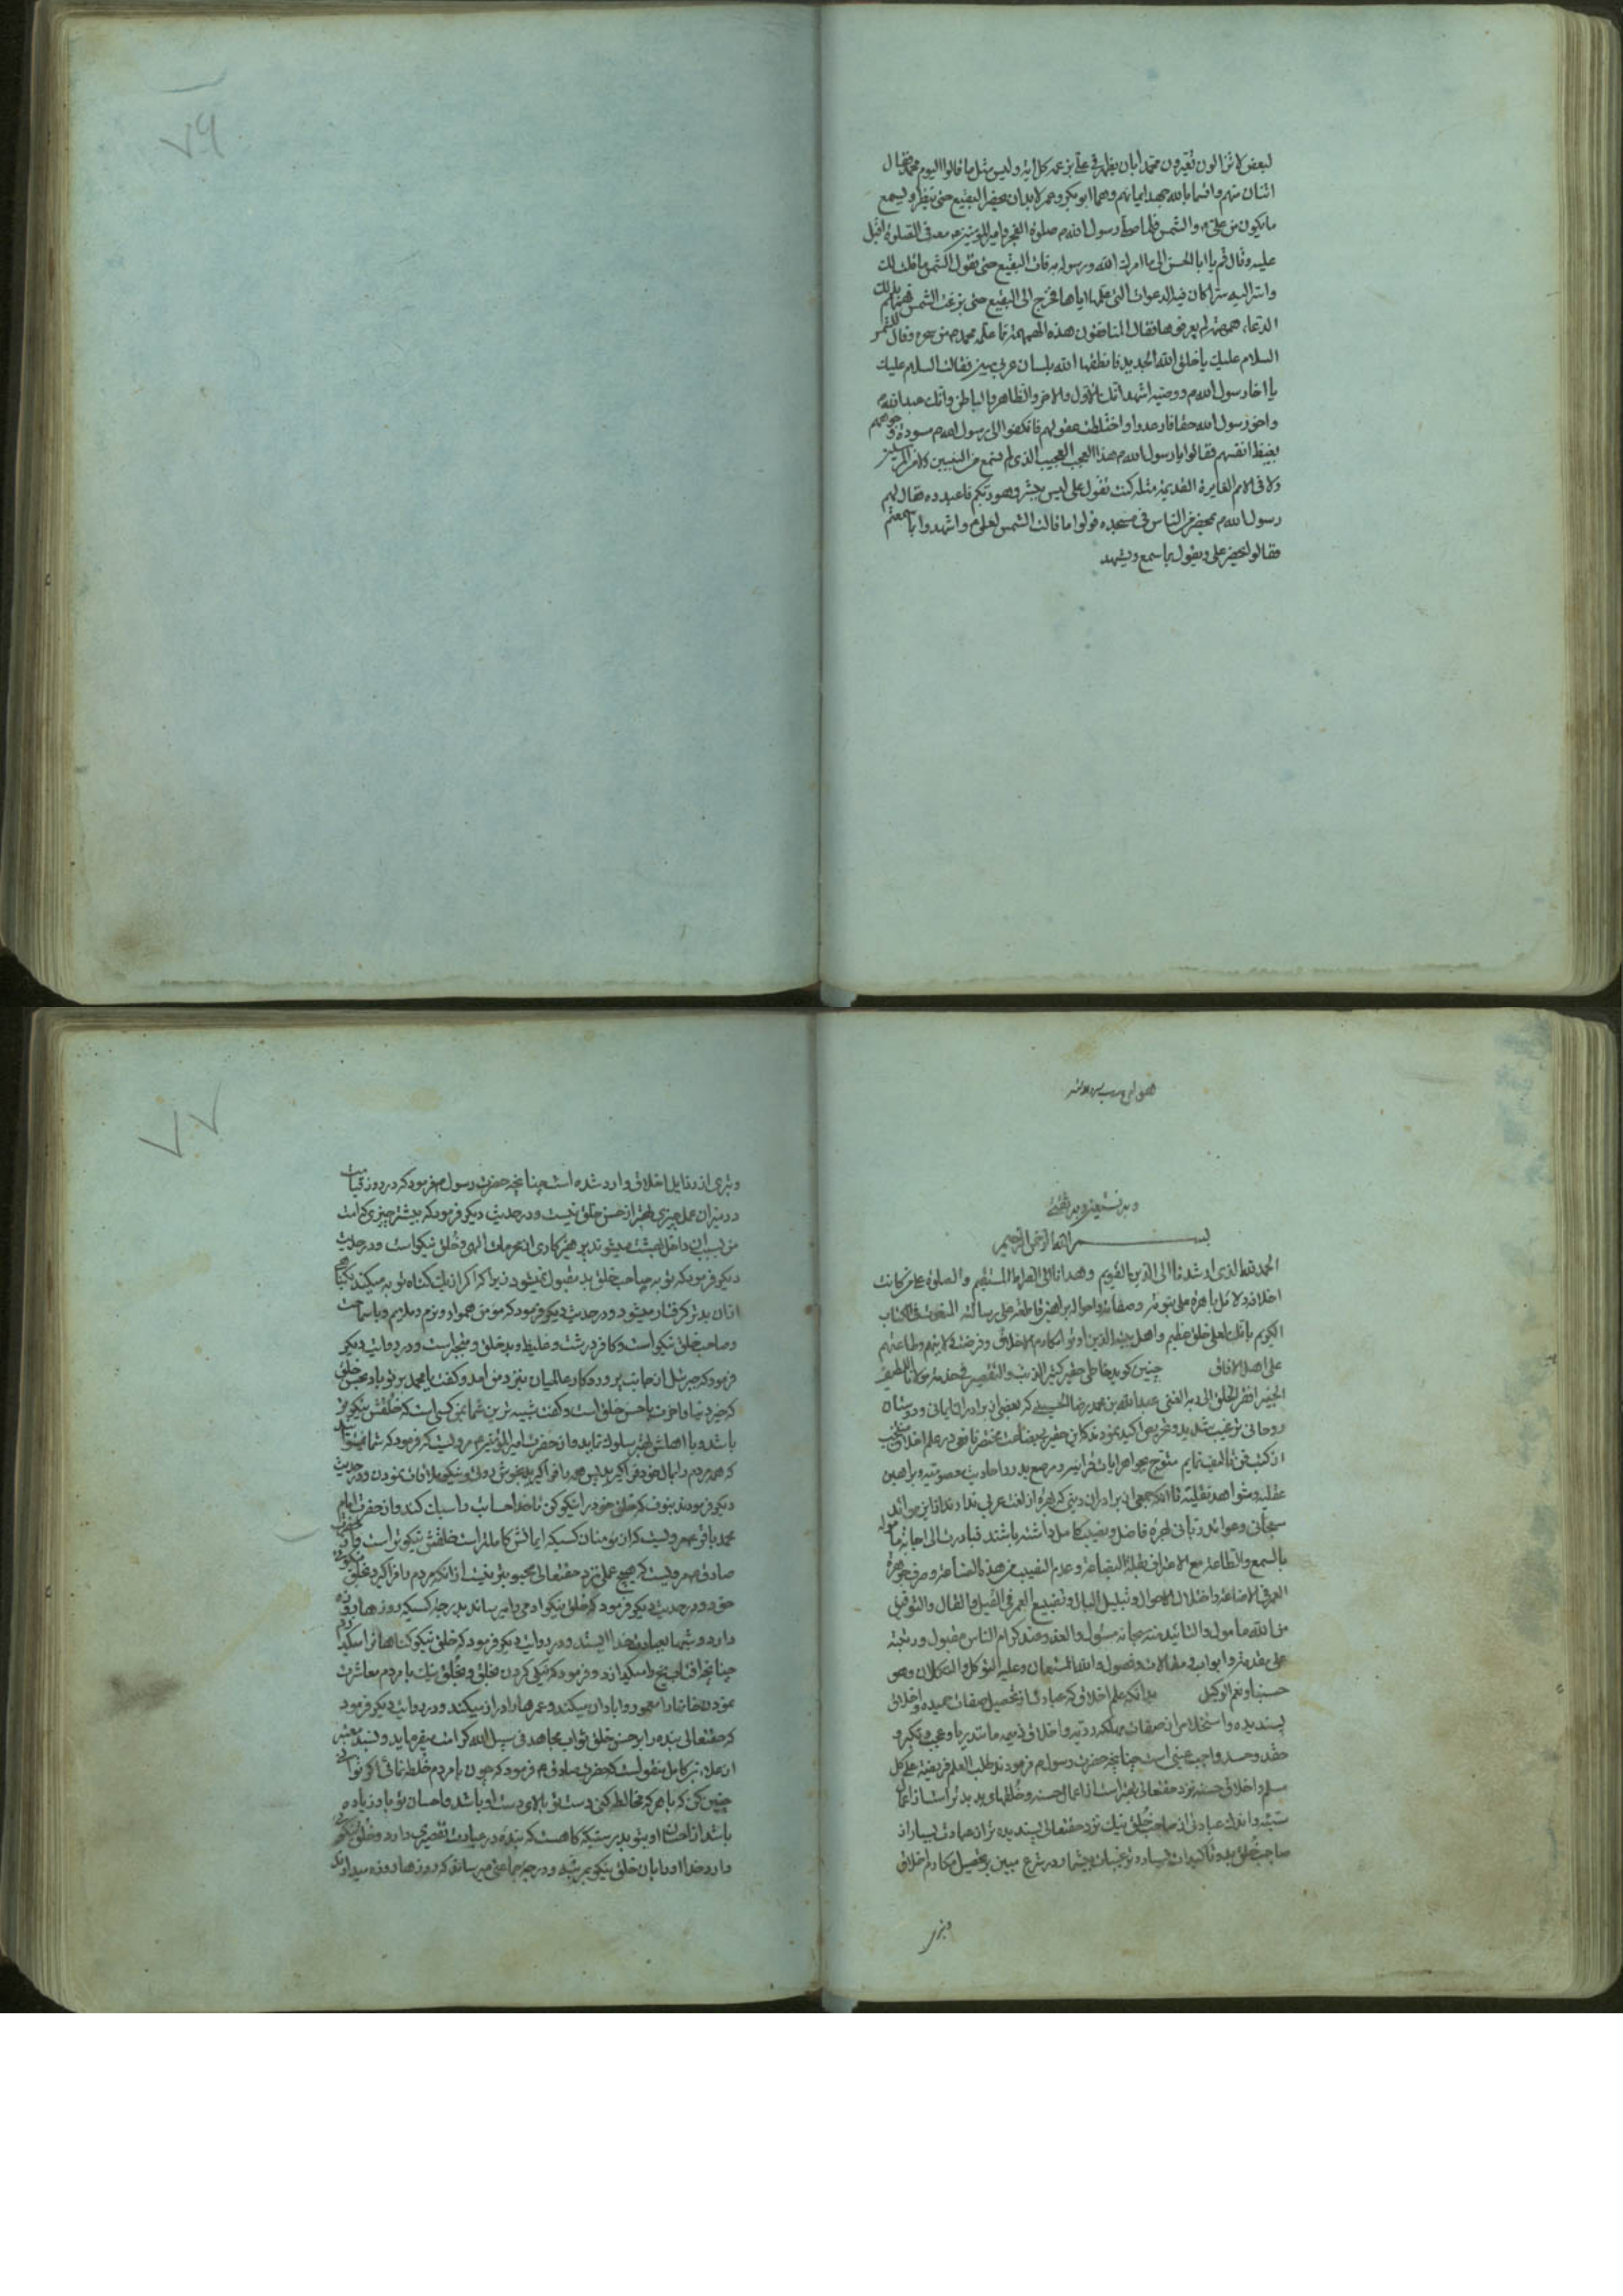 لبعض لا تزالون تقرون محمدا بان يظهر في علي بن عمه كل اية وليس مثل ما قالوا اليوم محمد فقال
اثنان منهم واقسما بالله جهد ايمانهم وهما ابو بكر وعمر لا بد ان يحضر البقيع حتى ينظر ويسمع
ما يكون من علي والشمس فلما صلى رسول الله صلوة الفجر وامير المؤمنين معه في الصلوة اقبل
عليه وقال قم يا ابا الحسن الى ما امرك الله ورسوله به فات البقيع حتى تقول الشمس ما قلت لك
واسر اليه سرا كان فيه الدعوات التي علمها اياها فخرج الى البقيع حتى بزغت الشمس فهمهم بذلك
الدعاء همهمة لم يعرفوها فقال المنافقون هذه الهمهمة ما علمه محمد من سحره وقال للشمس
السلام عليك يا خلق الله الجديد فانطقها الله بلسان عربي مبين فقالت السلام عليك
يا اخا رسول الله ووصيه اشهد انك الاول والاخر والظاهر والباطن وانك عبد الله
واخو رسول الله حقا فارعدوا واختلطت عقولهم فانكفوا الى رسول الله مسودة وجوههم
بغيظ انفسهم فقالوا يا رسول الله هذا العجب العجيب الذي لم نسمع من النبيين ولا من المرسلين
ولا في الامم الغابرة القديمة مثله كنت تقول علي ليس ببشر وهو ربكم فاعبدوه فقال لهم
رسول الله بمحضر من الناس في مسجده قولوا ما قالت الشمس لعلي واشهدوا بما سمعتم
فقالوا يحضر علي ويقول بما سمع ويشهد
٧٦
وبه نستعين وبه ثقتي
بسم الله الرحمن الرحيم
الحمد لله الذي ارشدنا الى الدين القويم وهدانا الى الصراط المستقيم والصلوة على من كانت
اخلاقه دلائل باهرة على نبوته وصفاته واحواله براهين قاطعة على رسالته المنعوت في الكتاب
الكريم بانك لعلى خلق عظيم واهل بيته الذين اوتوا مكارم الاخلاق وفرضت ولايتهم وطاعتهم
على اهل الافاق چنين كويد خاطى حقير كثير الذنب والتقصير في خدمة مولانا اللطيف
الخبير افقر الخلق الى ربه الغنى عبد الله بن محمد رضا الحسيني كه بعضى از برادران ايمانى ودوستان
روحانى ترغيب شديد وتحريص اكيد نمودند كه اين حقير بى بضاعت مختصر نافعى در علم اخلاق منتخب
از كتب فن تاليف نمايم متوج بجواهر ايات قرانيه ومرصع بدرر احاديث معصوميه وبراهين
عقليه وشواهد نقليه تا انكه جمعى از برادران دينى كه بهره از لغت عربى ندارند از اين موائد
سبحانى وعوائد ربانى بهره فاضل ونصيب كامل داشته باشند فبادرت الى اجابة مأموله
بالسمع والطاعة مع الاعتراف بقلة البضاعة وعدم النصيب من هذه الصناعة وصرف جوهرة
العمر في الاضاعة واختلال الاحوال وتبلبل البال وتضييع العمر في القيل والقال والتوفيق
من الله مأمول والتائيد منه سبحانه مسئول والعذر عند كرام الناس مقبول ورتبته
على مقدمة وابواب ومقالات وفصول والله المستعان وعليه التوكل والتكلان وهو
حسبنا ونعم الوكيل بدانكه علم اخلاق كه عبارت از تحصيل صفات حميده واخلاق
پسنديده واستخلاص از صفات مهلكه رديه واخلاق ذميمه مانند ريا وعجب وتكبر و
حقد وحسد واجب عينى است چنانچه حضرت رسول فرمودند طلب العلم فريضة على كل
مسلم واخلاق حسنه نزد حقتعالى بهتر است از اعمال حسنه وخلقهاى بد بدتر است از اعمال
سيئه واندك عبادتى از صاحب خلق نيك نزد حقتعالى پسنديده تر از عبادت بسيار از
صاحب خلق بد وتاكيدات بسيار وترغيبات بيشمار در شرع مبين بر تحصيل مكارم اخلاق
وتبرى
٧٧
وتبرى از رذايل اخلاق وارد شده است چنانچه حضرت رسول فرمود كه در روز قيامت
در ميزان عمل چيزى بهتر از حسن خلق نيست ودر حديث ديكر فرمود كه بيشتر چيزى كه امت
من بسبب ان داخل بهشت ميشوند پرهيزكارى از محرمات الهى وخلق نيكو است ودر حديث
ديكر فرمود كه توبه صاحب خلق بد مقبول نميشود زيرا كه اكر از يك كناه توبه ميكند بكناهى
از ان بدتر كرفتار ميشود ودر حديث ديكر فرمود كه مؤمن هموار ونرم وملايم وبا سماحت
وصاحب خلق نيكو است وكافر درشت وغليظ وبد خلق ومتجبر است ودر روايت ديكر
فرمود كه جبرئيل از جانب پروردكار عالميان بنزد من امد وكفت يا محمد بر تو باد بحسن خلق
كه خير دنيا واخرت با حسن خلق است وكفت شبيه ترين شما بمن كسى است كه خلقش نيكوتر
باشد وبا اهلش بهتر سلوك نمايد واز حضرت امير المؤمنين مرويست كه فرمود كه شما نميتوانيد
كه همه مردم را بمال خود فرا كيريد پس همه را فرا كيريد بخوش روئى ونيكو ملاقات نمودن ودر حديث
ديكر فرمودند بنوف كه خلق خود را نيكو كن تا خدا حساب ترا سبك كند واز حضرت امام
محمد باقر مرويست كه از مؤمنان كسيكه ايمانش كاملتر است خلقش نيكوتر است واز حضرت
صادق مرويست كه هيچ عملى نزد حقتعالى محبوب تر نيست از انكه مردم را فرا كيرد بخلق نيكوى
خود ودر حديث ديكر فرمود كه خلق نيكو ادمى را ميرساند بدرجه كسيكه روزها روزه
دارد وشبها بعبادت خدا ايستد ودر روايت ديكر فرمود كه خلق نيكو كناهانرا ميكدازد
چنانچه افتاب يخ را ميكدازد وفرمود كه نيكى كردن بخلق وبخلق نيك با مردم معاشرت
نمودن خانها را معمور وابادان ميكند وعمرها را دراز ميكند ودر روايت ديكر فرمود
كه حقتعالى بنده را بر حسن خلق ثواب مجاهد في سبيل الله كرامت ميفرمايد وبسند معتبر
از علاء بن كامل منقولست كه حضرت صادق فرمود كه چون با مردم خلطه نمائى اكر توانى
چنين كن كه با هر كه مخالطه كنى دست تو بالاى دست او باشد واحسان تو باو زياده
باشد از احسان او بتو بدرستيكه كاه هست كه بنده در عبادت تقصيرى دارد وخلق نيكوئى
دارد خدا او را بان خلق نيكو بمرتبه ودرجه جماعتى ميرساند كه روزها روزه ميدارند